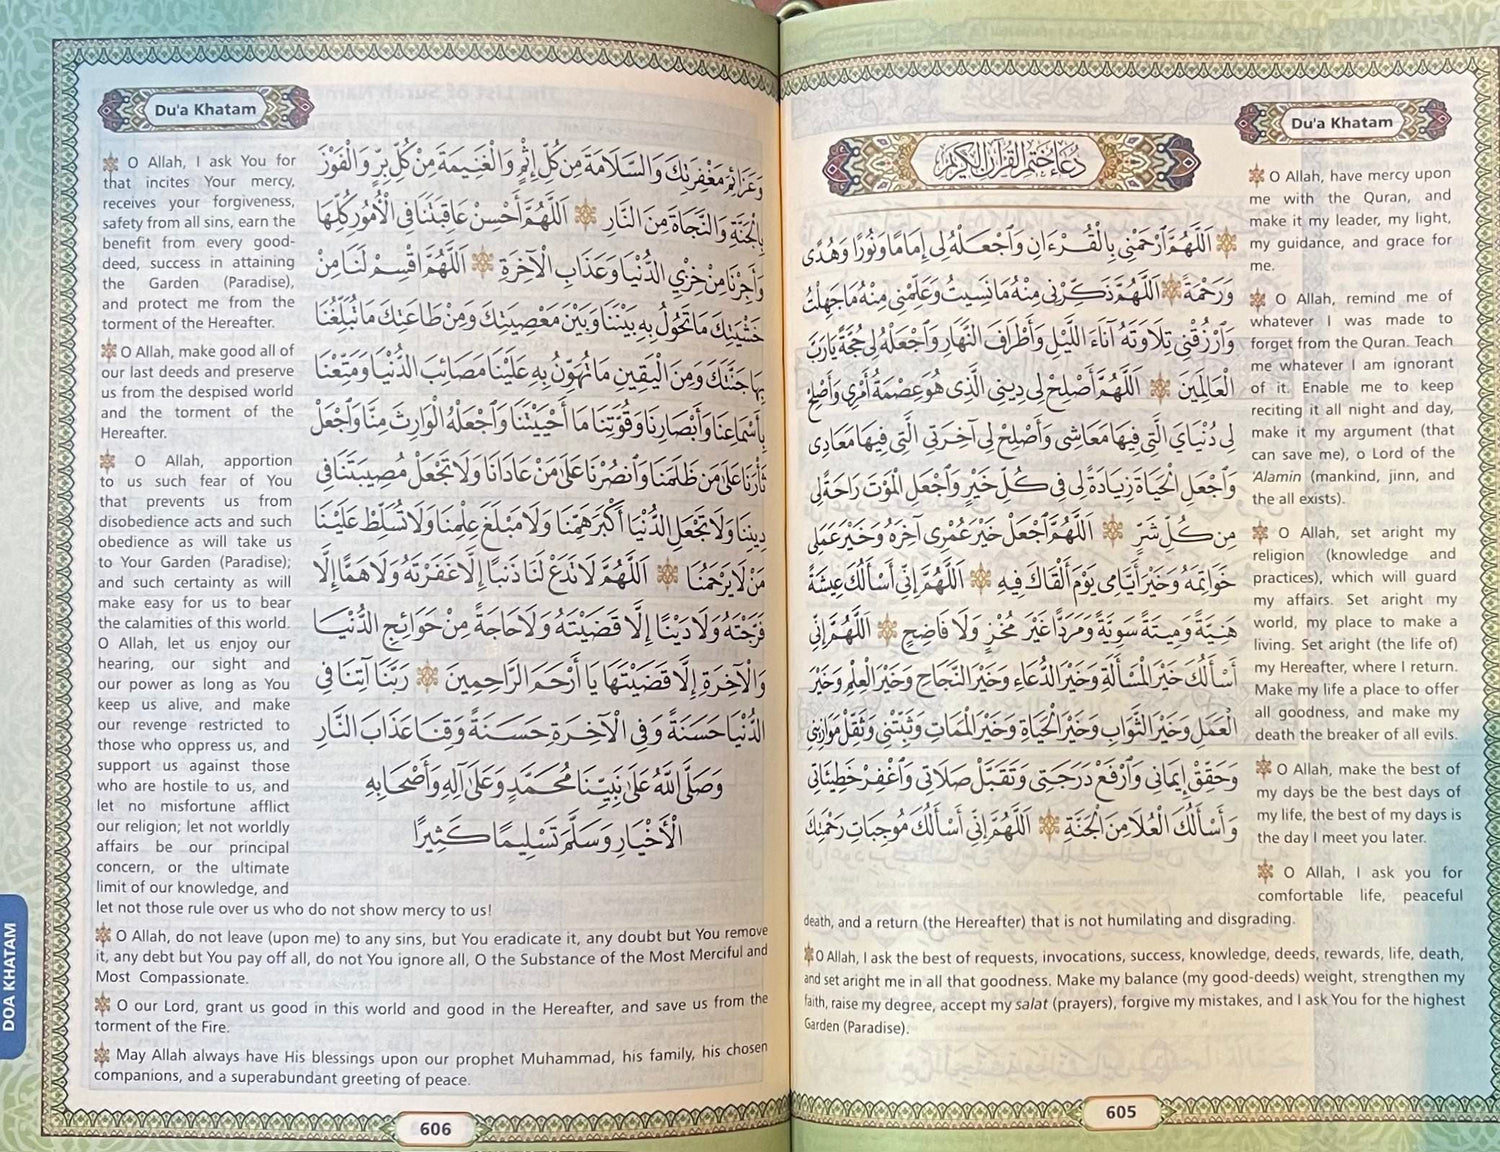 Du'a Khatam
دُعَاءُ خَتْمِ الْقُرْآنِ الْكَرِيْمِ
اَللَّهُمَّ ارْحَمْنِي بِالْقُرْءَانِ وَاجْعَلْهُ لِي إِمَامًا وَنُورًا وَهُدًى
وَرَحْمَةً اَللَّهُمَّ ذَكِّرْنِي مِنْهُ مَا نَسِيتُ وَعَلِّمْنِي مِنْهُ مَا جَهِلْتُ
وَارْزُقْنِي تِلَاوَتَهُ آنَاءَ اللَّيْلِ وَأَطْرَافَ النَّهَارِ وَاجْعَلْهُ لِي حُجَّةً يَا رَبَّ
الْعَالَمِينَ اَللَّهُمَّ أَصْلِحْ لِي دِينِي الَّذِي هُوَ عِصْمَةُ أَمْرِي وَأَصْلِحْ
لِي دُنْيَايَ الَّتِي فِيهَا مَعَاشِي وَأَصْلِحْ لِي آخِرَتِي الَّتِي فِيهَا مَعَادِي
وَاجْعَلِ الْحَيَاةَ زِيَادَةً لِي فِي كُلِّ خَيْرٍ وَاجْعَلِ الْمَوْتَ رَاحَةً لِي
مِن كُلِّ شَرٍّ اَللَّهُمَّ اجْعَلْ خَيْرَ عُمْرِي آخِرَهُ وَخَيْرَ عَمَلِي
خَوَاتِمَهُ وَخَيْرَ أَيَّامِي يَوْمَ أَلْقَاكَ فِيهِ اَللَّهُمَّ إِنِّي أَسْأَلُكَ عِيشَةً
هَنِيَّةً وَمِيتَةً سَوِيَّةً وَمَرَدًّا غَيْرَ مُخْزٍ وَلَا فَاضِحٍ اَللَّهُمَّ إِنِّي
أَسْأَلُكَ خَيْرَ الْمَسْأَلَةِ وَخَيْرَ الدُّعَاءِ وَخَيْرَ النَّجَاحِ وَخَيْرَ الْعِلْمِ وَخَيْرَ
الْعَمَلِ وَخَيْرَ الثَّوَابِ وَخَيْرَ الْحَيَاةِ وَخَيْرَ الْمَمَاتِ وَثَبِّتْنِي وَثَقِّلْ مَوَازِينِي
وَحَقِّقْ إِيمَانِي وَارْفَعْ دَرَجَتِي وَتَقَبَّلْ صَلَاتِي وَاغْفِرْ خَطِيئَاتِي
وَأَسْأَلُكَ الْعُلَا مِنَ الْجَنَّةِ اَللَّهُمَّ إِنِّي أَسْأَلُكَ مُوجِبَاتِ رَحْمَتِكَ
O Allah, have mercy upon
me with the Quran, and
make it my leader, my light,
my guidance, and grace for
me.
O Allah, remind me of
whatever I was made to
forget from the Quran. Teach
me whatever I am ignorant
of it. Enable me to keep
reciting it all night and day,
make it my argument (that
can save me), o Lord of the
'Alamin (mankind, jinn, and
the all exists).
O Allah, set aright my
religion (knowledge and
practices), which will guard
my affairs. Set aright my
world, my place to make a
living. Set aright (the life of)
my Hereafter, where I return.
Make my life a place to offer
all goodness, and make my
death the breaker of all evils.
O Allah, make the best of
my days be the best days of
my life, the best of my days is
the day I meet you later.
O Allah, I ask you for
comfortable life, peaceful
death, and a return (the Hereafter) that is not humilating and disgrading.
O Allah, I ask the best of requests, invocations, success, knowledge, deeds, rewards, life, death,
and set aright me in all that goodness. Make my balance (my good-deeds) weight, strengthen my
faith, raise my degree, accept my salat (prayers), forgive my mistakes, and I ask You for the highest
Garden (Paradise).
605
Du'a Khatam
وَعَزَائِمَ مَغْفِرَتِكَ وَالسَّلَامَةَ مِن كُلِّ إِثْمٍ وَالْغَنِيمَةَ مِنْ كُلِّ بِرٍّ وَالْفَوْزَ
بِالْجَنَّةِ وَالنَّجَاةَ مِنَ النَّارِ اَللَّهُمَّ أَحْسِنْ عَاقِبَتَنَا فِي الْأُمُورِ كُلِّهَا
وَأَجِرْنَا مِنْ خِزْيِ الدُّنْيَا وَعَذَابِ الْآخِرَةِ اَللَّهُمَّ اقْسِمْ لَنَا مِنْ
خَشْيَتِكَ مَا تَحُولُ بِهِ بَيْنَنَا وَبَيْنَ مَعْصِيَتِكَ وَمِنْ طَاعَتِكَ مَا تُبَلِّغُنَا
بِهَا جَنَّتَكَ وَمِنَ الْيَقِينِ مَا تُهَوِّنُ بِهِ عَلَيْنَا مَصَائِبَ الدُّنْيَا وَمَتِّعْنَا
بِأَسْمَاعِنَا وَأَبْصَارِنَا وَقُوَّتِنَا مَا أَحْيَيْتَنَا وَاجْعَلْهُ الْوَارِثَ مِنَّا وَاجْعَلْ
ثَأْرَنَا عَلَى مَن ظَلَمَنَا وَانْصُرْنَا عَلَى مَنْ عَادَانَا وَلَا تَجْعَلْ مُصِيبَتَنَا فِي
دِينِنَا وَلَا تَجْعَلِ الدُّنْيَا أَكْبَرَ هَمِّنَا وَلَا مَبْلَغَ عِلْمِنَا وَلَا تُسَلِّطْ عَلَيْنَا
مَنْ لَا يَرْحَمُنَا اَللَّهُمَّ لَا تَدَعْ لَنَا ذَنْبًا إِلَّا غَفَرْتَهُ وَلَا هَمًّا إِلَّا
فَرَّجْتَهُ وَلَا دَيْنًا إِلَّا قَضَيْتَهُ وَلَا حَاجَةً مِنْ حَوَائِجِ الدُّنْيَا
وَالْآخِرَةِ إِلَّا قَضَيْتَهَا يَا أَرْحَمَ الرَّاحِمِينَ رَبَّنَا آتِنَا فِي
الدُّنْيَا حَسَنَةً وَفِي الْآخِرَةِ حَسَنَةً وَقِنَا عَذَابَ النَّارِ
وَصَلَّى اللَّهُ عَلَى نَبِيِّنَا مُحَمَّدٍ وَعَلَى آلِهِ وَأَصْحَابِهِ
الْأَخْيَارِ وَسَلَّمَ تَسْلِيمًا كَثِيرًا
O Allah, I ask You for
that incites Your mercy,
receives your forgiveness,
safety from all sins, earn the
benefit from every good-
deed, success in attaining
the Garden (Paradise),
and protect me from the
torment of the Hereafter.
O Allah, make good all of
our last deeds and preserve
us from the despised world
and the torment of the
Hereafter.
O Allah, apportion
to us such fear of You
that prevents us from
disobedience acts and such
obedience as will take us
to Your Garden (Paradise);
and such certainty as will
make easy for us to bear
the calamities of this world.
O Allah, let us enjoy our
hearing, our sight and
our power as long as You
keep us alive, and make
our revenge restricted to
those who oppress us, and
support us against those
who are hostile to us, and
let no misfortune afflict
our religion; let not worldly
affairs be our principal
concern, or the ultimate
limit of our knowledge, and
let not those rule over us who do not show mercy to us!
O Allah, do not leave (upon me) to any sins, but You eradicate it, any doubt but You remove
it, any debt but You pay off all, do not You ignore all, O the Substance of the Most Merciful and
Most Compassionate.
O our Lord, grant us good in this world and good in the Hereafter, and save us from the
torment of the Fire.
May Allah always have His blessings upon our prophet Muhammad, his family, his chosen
companions, and a superabundant greeting of peace.
606
DOA KHATAM